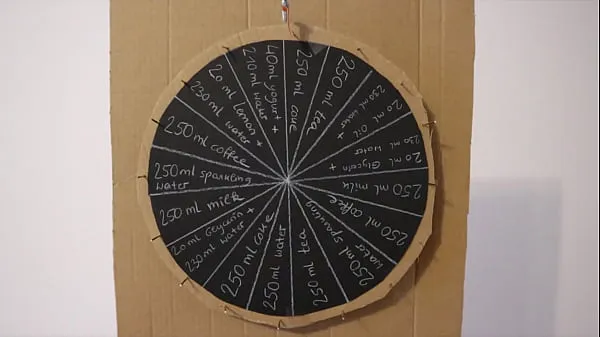 250 ml coke
250 ml tea
250 ml water +
20 ml Oil
230 ml water +
20 ml Glycerin
250 ml milk
250 ml coffee
250 ml sparkling
water
250 ml tea
250 ml water
250 ml coke
20 ml Glycerin
230 ml water +
250 ml milk
250 ml sparkling
water
250 ml coffee
20 ml lemon +
230 ml water
40 ml yogurt +
210 ml water